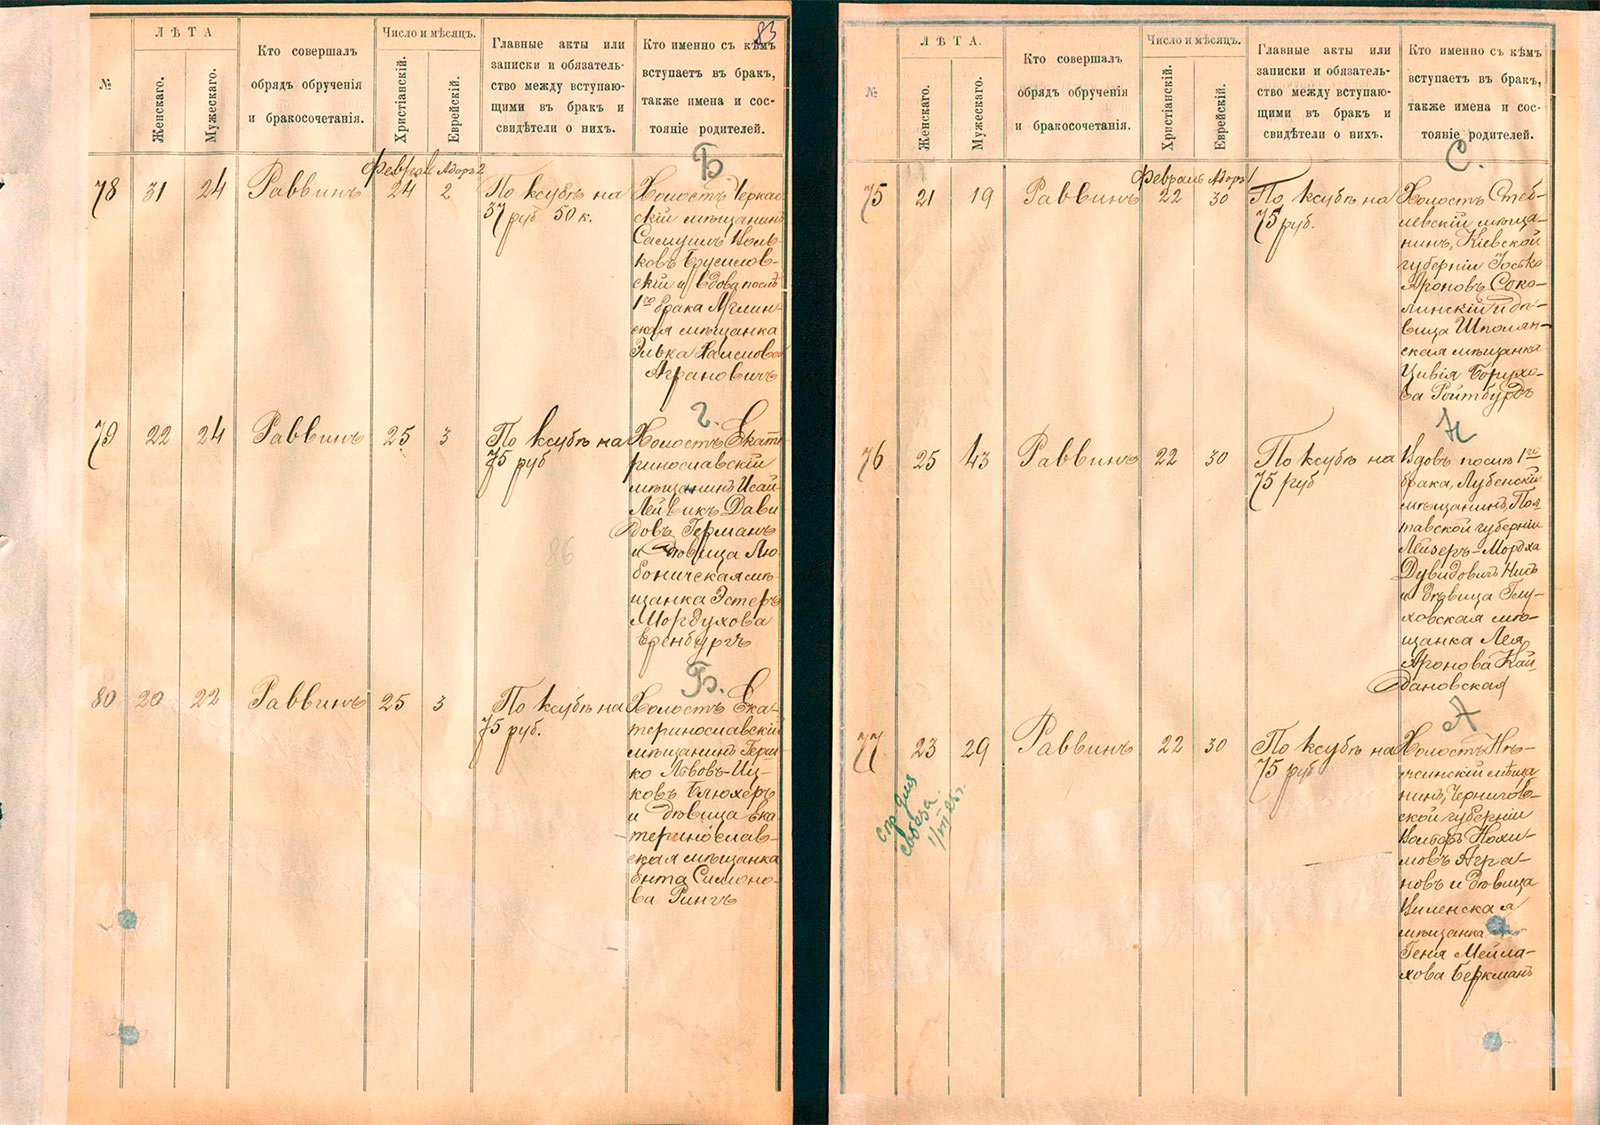 83
№
ЛѢТА
Женскаго.
Мужескаго.
Кто совершалъ
обрядъ обрученія
и бракосочетанія.
Число и мѣсяцъ.
Христіанскій.
Еврейскій.
Главные акты или
записки и обязатель-
ство между вступаю-
щими въ бракъ и
свидѣтели о нихъ.
Кто именно съ кѣмъ
вступаетъ въ бракъ,
также имена и сос-
тояніе родителей.
Б
78 31 24 Раввинъ Февраль 24 Адоръ 2 2
По ксубѣ на
37 руб 50 к.
Холостъ Черкас-
скій мѣщанинъ
Самуилъ Воль-
ковъ Брусилов-
скій и вдова послѣ
1го брака Мглин-
ская мѣщанка
Элька Хаимова
Аграновичъ
Г.
79 22 24 Раввинъ 25 3
По ксубѣ на
75 руб
Холостъ Екате-
ринославскій
мѣщанинъ Исай-
Лейвикъ Дави
довъ Германъ
и дѣвица Лю-
боничская мѣ-
щанка Эстеръ
Мордухова
Еренбургъ
86
Б.
80 20 22 Раввинъ 25 3
По ксубѣ на
75 руб.
Холостъ Ека-
теринославскій
мѣщанинъ Герш-
ко Львовъ-Иц-
ковъ Блюхеръ
и дѣвица Ека
теринослав-
ская мѣщанка
Бнта Симоно-
ва Рингъ
№
ЛѢТА.
Женскаго.
Мужескаго.
Кто совершалъ
обрядъ обрученія
и бракосочетанія.
Число и мѣсяцъ.
Христіанскій.
Еврейскій.
Главные акты или
записки и обязатель-
ство между вступаю-
щими въ бракъ и
свидѣтели о нихъ.
Кто именно съ кѣмъ
вступаетъ въ бракъ,
также имена и сос-
тояніе родителей.
С.
75 21 19 Раввинъ Февраль 22 Адоръ 1 30
По ксубѣ на
75 руб.
Холостъ Стеб-
левскій мѣща-
нинъ, Кіевской
губерніи Іосько
Ароновъ Соко-
линскій и дѣ-
вица Шполян-
ская мѣщанка
Цивія Борухо-
ва Ройтбурдъ
Н
76 25 43 Раввинъ 22 30
По ксубѣ на
75 руб
Вдовъ послѣ 1го
брака, Лубенскій
мѣщанинъ, Пол
тавской губерніи
Лейзеръ-Мордха
Дувидовичъ Нисъ
и дѣвица Глу-
ховская мѣ-
щанка Лея
Аронова Кай-
дановская
А
77 23 29 Раввинъ 22 30
По ксубѣ на
75 руб
Холостъ Нѣ-
жинскій мѣща
нинъ, Чернигов-
ской губерніи
Вольфъ Нохи-
мовъ Агра-
новъ и дѣвица
Виленская
мѣщанка
Геня Мейла-
хова Беркманъ
спр для